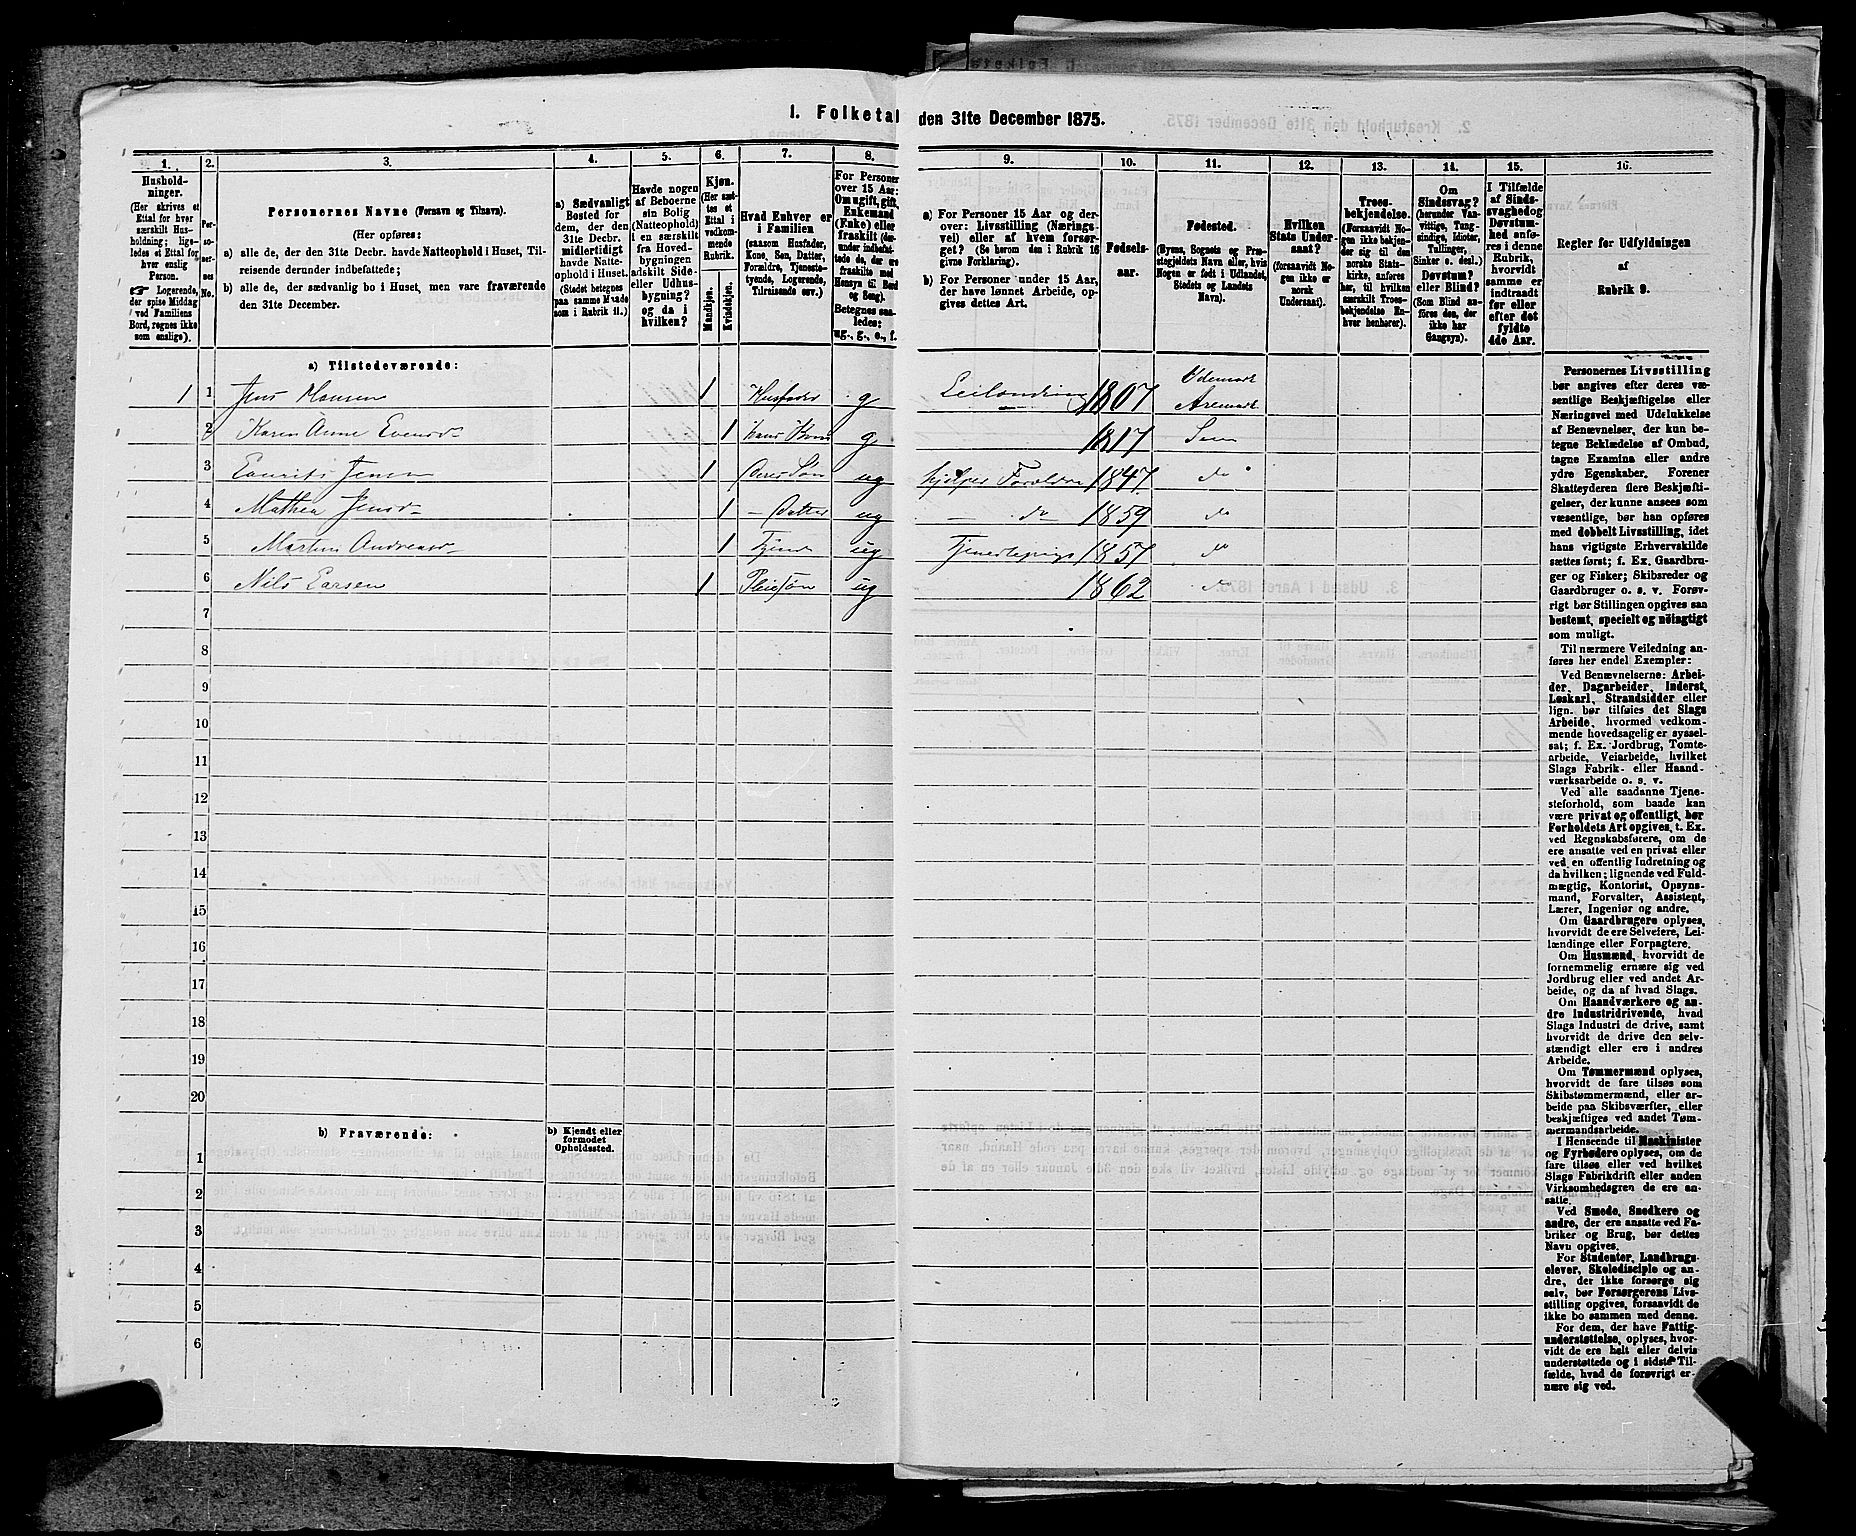 1. Folketal den 31te December 1875.
1.
Hushold-
ninger.
(Her skrives et
Ettal for hver
særskilt Hus-
holdning; lige-
ledes et Ettal for
hver enslig
Person.
Logerende,
der spise Middag
ved Familiens
Bord, regnes ikke
som enslige).
2.
Per-
so-
ner-
nes
No.
3.
Personernes Navne (Fornavn og Tilnavn).
(Her opføres:
a) alle de, der den 31te Decbr. havde Natteophold i Huset, Til-
reisende derunder indbefattede;
b) alle de, der sædvanlig bo i Huset, men vare fraværende
den 31te December.
4.
a) Sædvanligt
Bosted for
dem, der den
31te Decbr.
midlertidigt
havde Natte-
ophold i Huset.
(Stedet betegnes
paa samme Maade
som i Rubrik 11.)
5.
Havde nogen
af Beboerne
sin Bolig
(Natteophold)
i en særskilt
fra Hoved-
bygningen
adskilt Side-
eller Udhus-
bygning?
og da i
hvilken?
6.
Kjøn.
(Her sæt-
tes et
Ettal i
vedkom-
mende
Rubrik.
Mandkjøn.
Kvindekjøn.
7.
Hvad Enhver er
i Familien
(saasom Husfader,
Kone, Søn, Datter,
Forældre, Tjeneste-
tyende, Logerende,
Tilreisende osv.)
8.
For Personer
over 15 Aar:
Om ugift, gift,
Enkemand
(Enke) eller
fraskilt (der-
under indbefat-
tede de, der ere
fraskilte med
Hensyn til Bord
og Seng).
Betegnes saa-
ledes:
ug., g., e., f.
9.
a) For Personer 15 Aar og der-
over: Livsstilling (Nærings-
vei) eller af hvem forsør-
get? (Se herom den i Rubrik 16
givne Forklaring).
b) For Personer under 15 Aar,
der have lønnet Arbeide, op-
gives dettes Art.
10.
Fødsels-
aar.
11.
Fødested.
(Byens, Sognets og Præ-
stegjeldets Navn eller, hvis
Nogen er født i Udlandet,
Stedets og Landets
Navn).
12.
Hvilken
Stats Under-
saat?
(forsaavidt No-
gen ikke er
norsk
Undersaat).
13.
Troes-
bekjendelse.
(Forsaavidt No-
gen ikke bekjen-
der sig til den
norske Stats-
kirke, anføres
her, til hvilken
særskilt Troes-
bekjendelse En-
hver henhører).
14.
Om
Sindssvag?
(herunder Van-
vittige, Tung-
sindige, Idioter,
Tullinger,
Sinker o. desl.)
Døvstum?
eller Blind?
(Som Blind an-
føres den, der
ikke har
Gangsyn).
15.
I Tilfælde
af Sinds-
svaghed og
Døvstum-
hed anfø-
res i denne
Rubrik,
hvorvidt
samme er
indtraadt
før eller
efter det
fyldte
4de Aar.
16.
Regler for Udfyldningen
af
Rubrik 9.
a) Tilstedeværende:
1 1 Jens Hansen 1 Husfader g Leilænding 1807 Aremark
2 Karen Anne Evensd 1 hans Kone g 1817
3 Laurits Jensen 1 deres Søn ug hjelper Forældre 1847 do
4 Mathea Jensd 1 - Datter ug - do 1859 do
5 Martine Andreasd 1 Tjener ug Tjenestepige 1857 do
6 Nils Larsen 1 Pleiesøn ug 1862 do
7
8
9
10
11
12
13
14
15
16
17
18
19
20
b) Fraværende:
b) Kjendt eller
formodet
Opholdssted.
1
2
3
4
5
6
Personernes Livsstilling
bør angives efter deres væ-
sentlige Beskjæftigelse eller
Næringsvei med Udelukkelse
af Benævnelser, der kun be-
tegne Beklædelse af Ombud,
tagne Examina eller andre
ydre Egenskaber. Forener
Skatteyderen flere Beskjæfti-
gelser, der kunne ansees som
væsentlige, bør han opføres
med dobbelt Livsstilling, idet
hans vigtigste Erhvervskilde
sættes først; f. Ex. Gaardbru-
ger og Fisker; Skibsreder og
Gaardbruger o. s. v. Forøv-
rigt bør Stillingen opgives saa
bestemt, specielt og nøiagtigt
som muligt.
Til nærmere Veiledning an-
føres her endel Exempler:
Ved Benævnelserne: Arbei-
der, Dagarbeider, Inderst,
Løskarl, Strandsidder eller
lign. bør tilføies det Slags
Arbeide, hvormed vedkom-
mende hovedsagelig er syssel-
sat; f. Ex. Jordbrug, Tomte-
arbeide, Veiarbeide, hvilket
Slags Fabrik- eller Haand-
værksarbeide o. s. v.
Ved alle saadanne Tjene-
steforhold, som baade kan
være privat og offentligt, bør
Forholdets Art opgives, t. Ex.
ved Regnskabsførere, om de
ere ansatte ved en privat eller
ved en offentlig Indretning og
da hvilken; lignende ved Fuld-
mægtig, Kontorist, Opsyns-
mand, Forvalter, Assistent,
Lærer, Ingeniør og andre.
Om Gaardbrugere oplyses,
hvorvidt de ere Selveiere, Lei-
lændinge eller Forpagtere.
Om Husmænd, hvorvidt de
fornemmelig ernære sig ved
Jordbrug eller ved andet Ar-
beide, og da af hvad Slags.
Om Haandværkere og an-
dre Industridrivende, hvad
Slags Industri de drive, samt
hvorvidt de drive den selv-
stændigt eller ere i andres
Arbeide.
Om Tømmermænd oplyses,
hvorvidt de fare tilsøs som
Skibstømmermænd, eller ar-
beide paa Skibsværfter, eller
beskjæftiges ved andet Tøm-
mermandsarbeide.
I Henseende til Maskinister
og Fyrbødere oplyses, om de
fare tilsøs eller ved hvilket
Slags Fabrikdrift eller anden
Virksomhedsgren de ere an-
satte.
Ved Smede, Snedkere og
andre, der ere ansatte ved Fa-
briker og Brug, bør dettes
Navn opgives.
For Studenter, Landbrugs-
elever, Skoledisciple og an-
dre, der ikke forsørge sig
selv, bør Forsørgerens Livs-
stilling opgives, forsaavidt de
ikke bo sammen med denne.
For dem, der have Fattig-
understøttelse, oplyses, hvor-
vidt de ere helt eller delvis
understøttede og i sidste Til-
fælde, hvad de forøvrigt er-
nære sig ved.